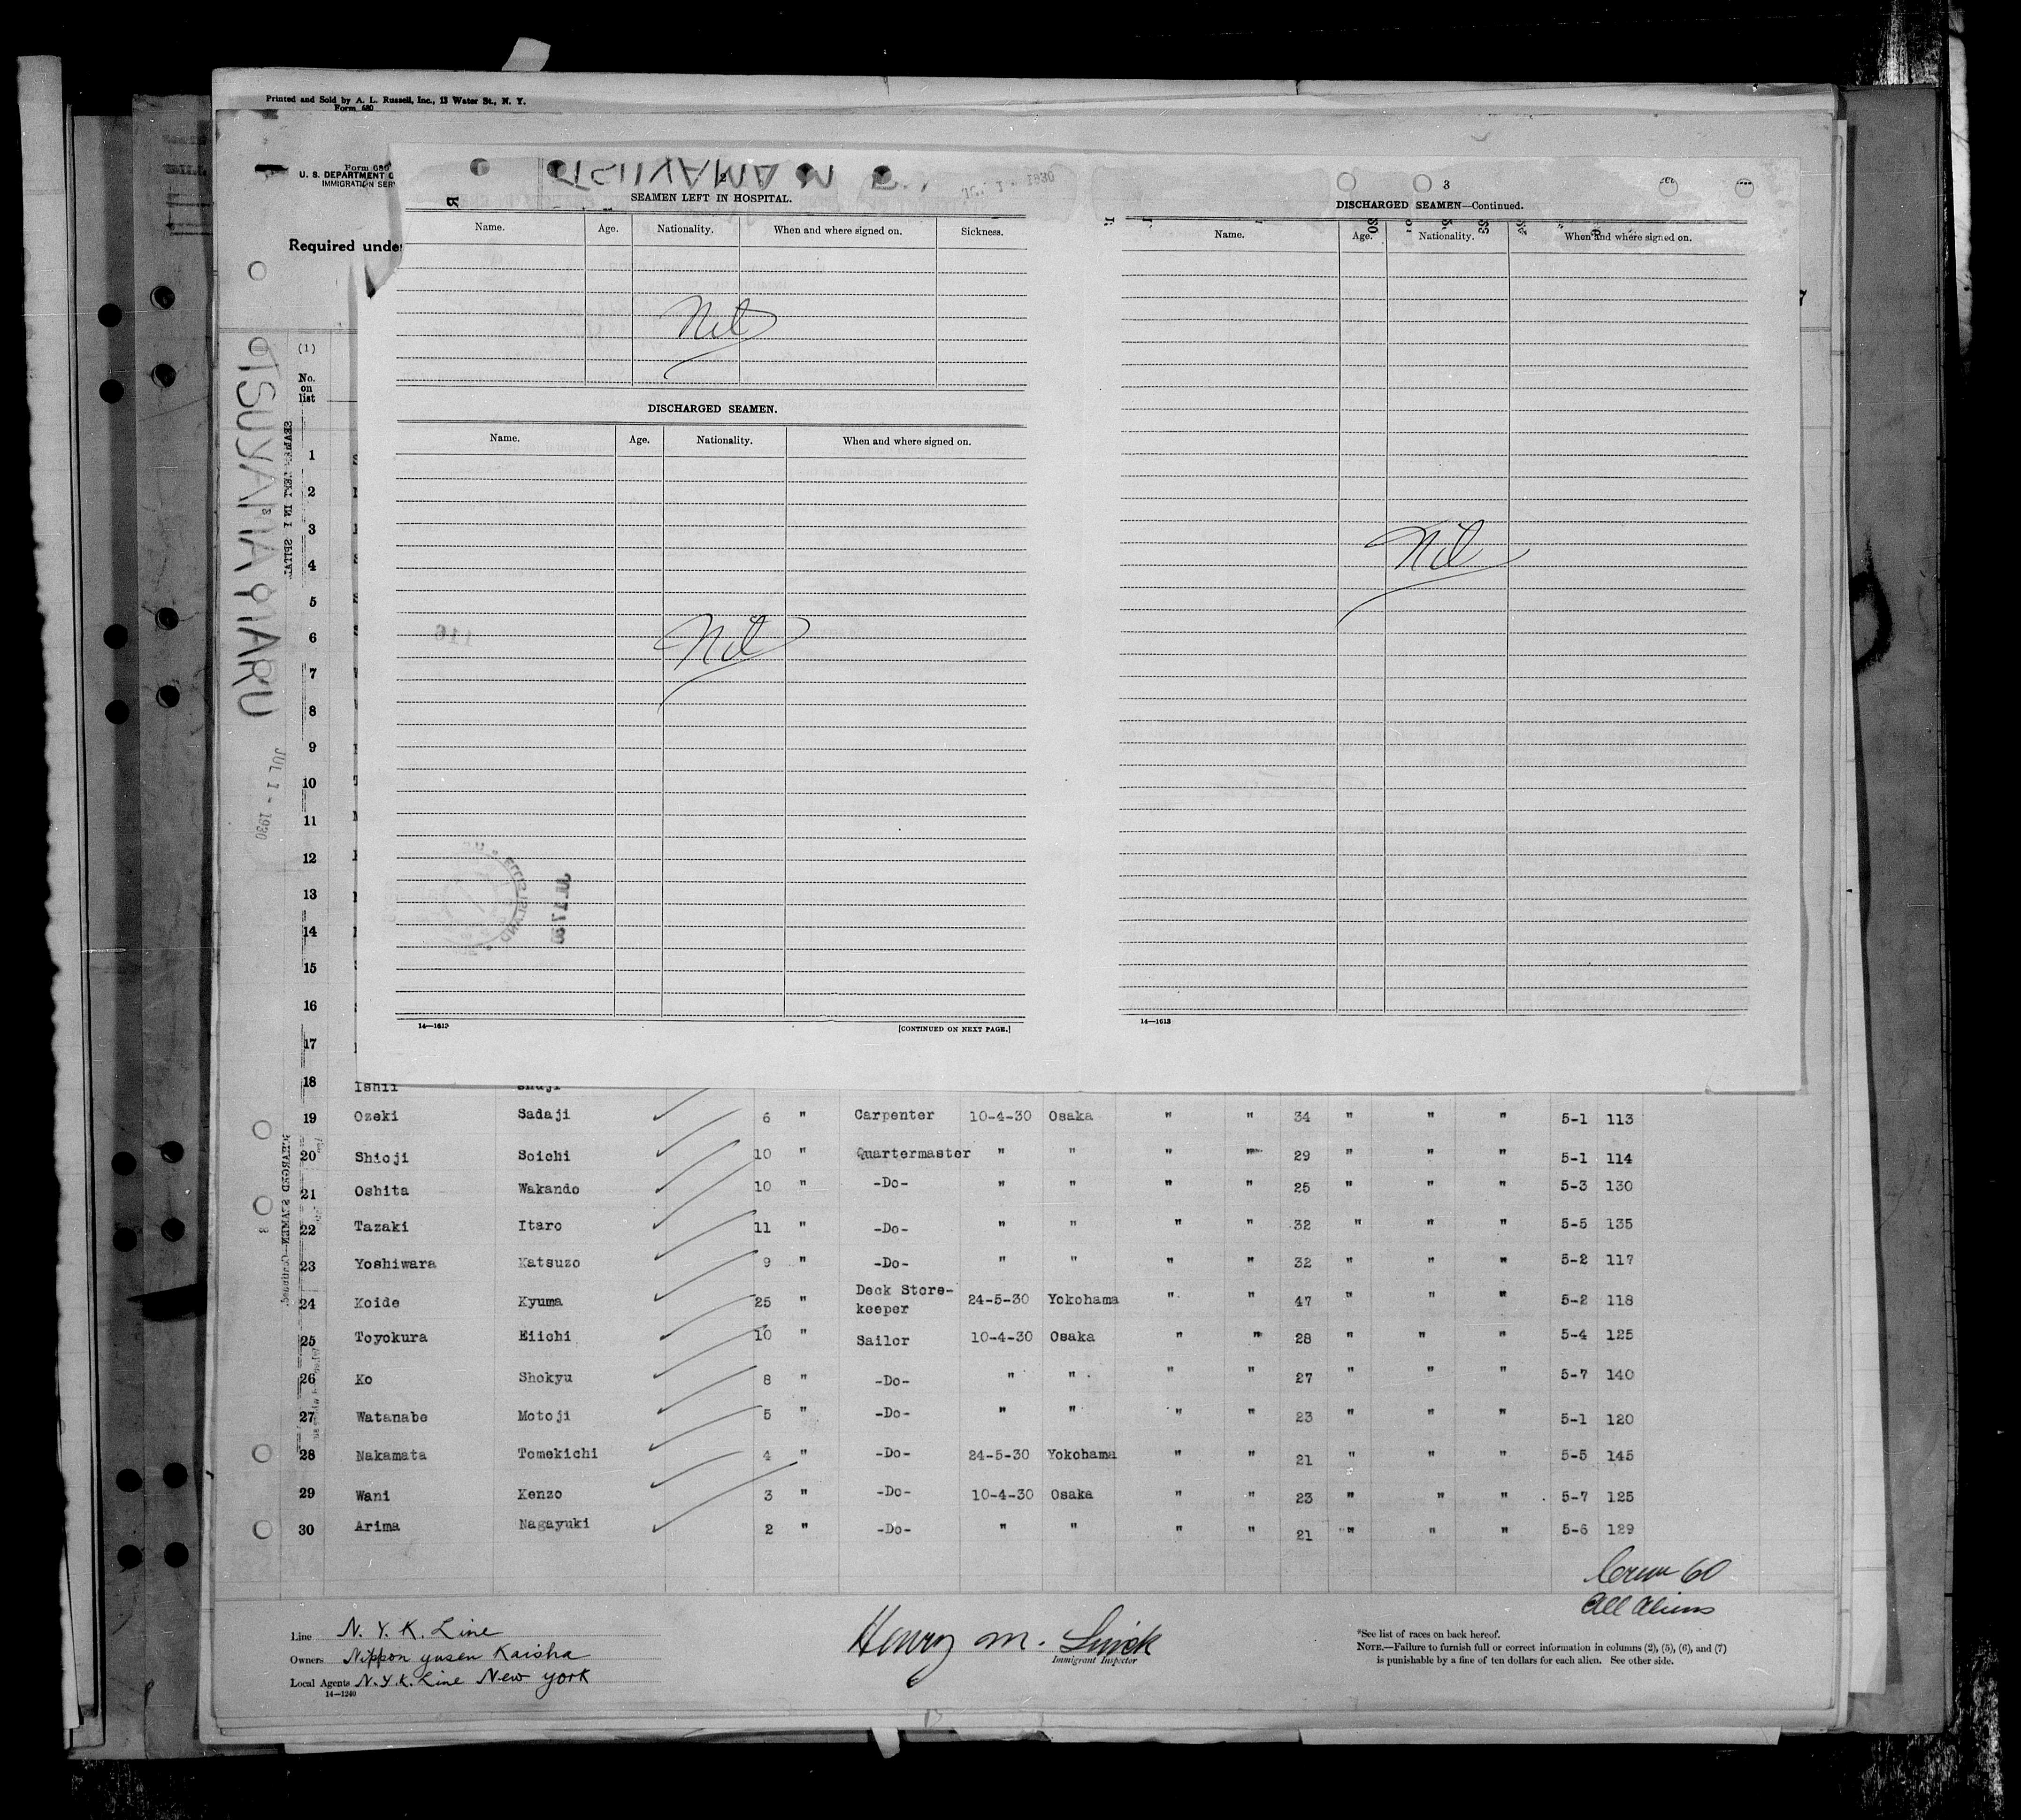 Printed and Sold by A. L. Russell, Inc., 13 Water St., N. Y.
Form 680
Form 680
U. S. DEPARTMENT
IMMIGRATION SERV
Required unde
2
SEAMEN LEFT IN HOSPITAL.
Name. Age. Nationality. When and where signed on. Sickness.
Nil
DISCHARGED SEAMEN.
Name. Age. Nationality. When and where signed on.
Nil
14—1613 [CONTINUED ON NEXT PAGE.]
3
DISCHARGED SEAMEN—Continued.
Name. Age. Nationality. When and where signed on.
Nil
14—1613
OTSUYAMA MARU
JUL 1 - 1930
(1)
No. on list
1
2
3
4
5
6
7
8
9
10
11
12
13
14
15
16
17
18 Ishii Shuji
19 Ozeki Sadaji 6 " Carpenter 10-4-30 Osaka " " 34 " " " 5-1 113
20 Shioji Soichi 10 " Quartermaster " " " " 29 " " " 5-1 114
21 Oshita Wakando 10 " -Do- " " " " 25 " " " 5-3 130
22 Tazaki Itaro 11 " -Do- " " " " 32 " " " 5-5 135
23 Yoshiwara Katsuzo 9 " -Do- " " " " 32 " " " 5-2 117
24 Koide Kyuma 25 " Deck Store-keeper 24-5-30 Yokohama " " 47 " " " 5-2 118
25 Toyokura Eiichi 10 " Sailor 10-4-30 Osaka " " 28 " " " 5-4 125
26 Ko Shokyu 8 " -Do- " " " " 27 " " " 5-7 140
27 Watanabe Motoji 5 " -Do- " " " " 23 " " " 5-1 120
28 Nakamata Tomekichi 4 " -Do- 24-5-30 Yokohama " " 21 " " " 5-5 145
29 Wani Kenzo 3 " -Do- 10-4-30 Osaka " " 23 " " " 5-7 125
30 Arima Nagayuki 2 " -Do- " " " " 21 " " " 5-6 129
Crew 60
All Aliens
Line N. Y. K. Line
Owners Nippon Yusen Kaisha
Local Agents N.Y.K. Line New York
14—1240
Henry M.
Immigrant Inspector
*See list of races on back hereof.
NOTE.—Failure to furnish full or correct information in columns (2), (5), (6), and (7)
is punishable by a fine of ten dollars for each alien. See other side.